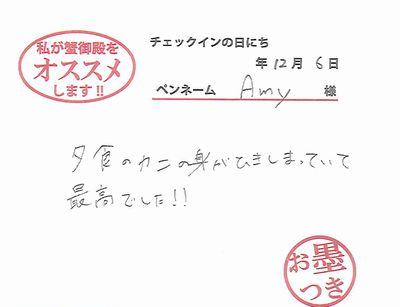 私が蟹御殿を
オススメ
します!!
チェックインの日にち
年12月6日
ペンネーム Amy 様
夕食のカニの身がひきしまっていて
最高でした!!
お墨
つき